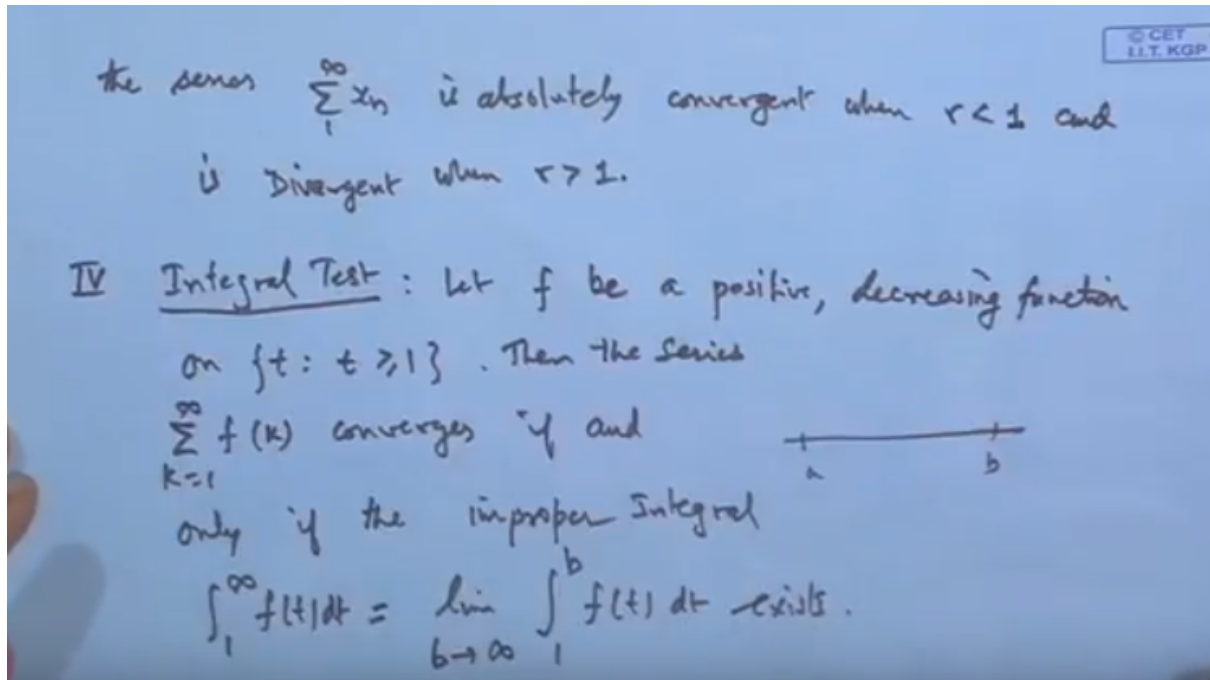 © CET
I.I.T. KGP
the series ∑_{1}^{∞} x_n is absolutely convergent when r < 1 and
is Divergent when r > 1.
IV Integral Test : Let f be a positive, decreasing function
on {t : t ≥ 1} . Then the Series
∑_{k=1}^{∞} f (k) converges if and
a b
only if the improper Integral
∫_{1}^{∞} f(t) dt = lim_{b→∞} ∫_{1}^{b} f(t) dt exists.